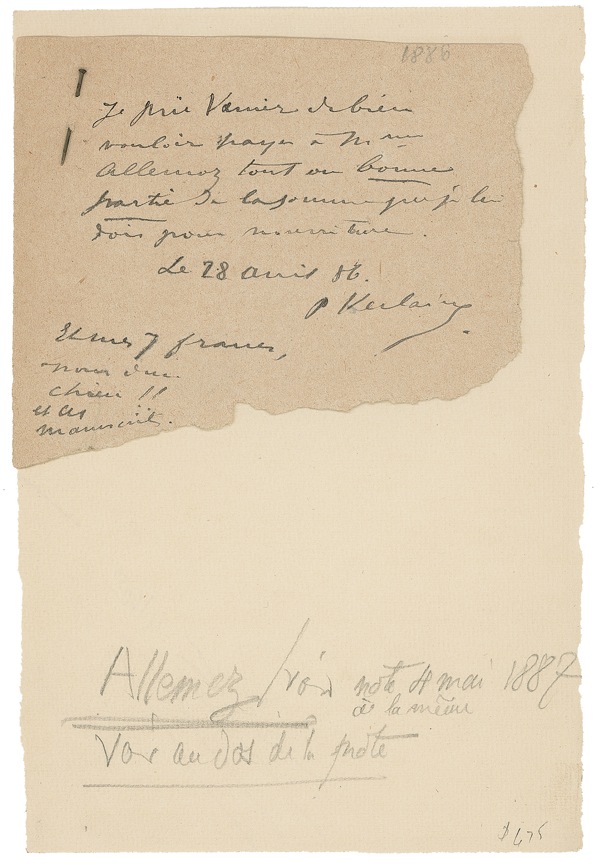 1886
Je prie Vanier de bien
vouloir payer à Mme
Allemoz tout ou bonne
partie de la somme que je lui
dois pour nourriture.
Le 28 avril 86.
P Verlaine
Et mes 7 francs,
nom d'un
chien !!
et les
manuscrits.
Allemez / voir note 4 mai 1887
de la même
Voir au dos de la note